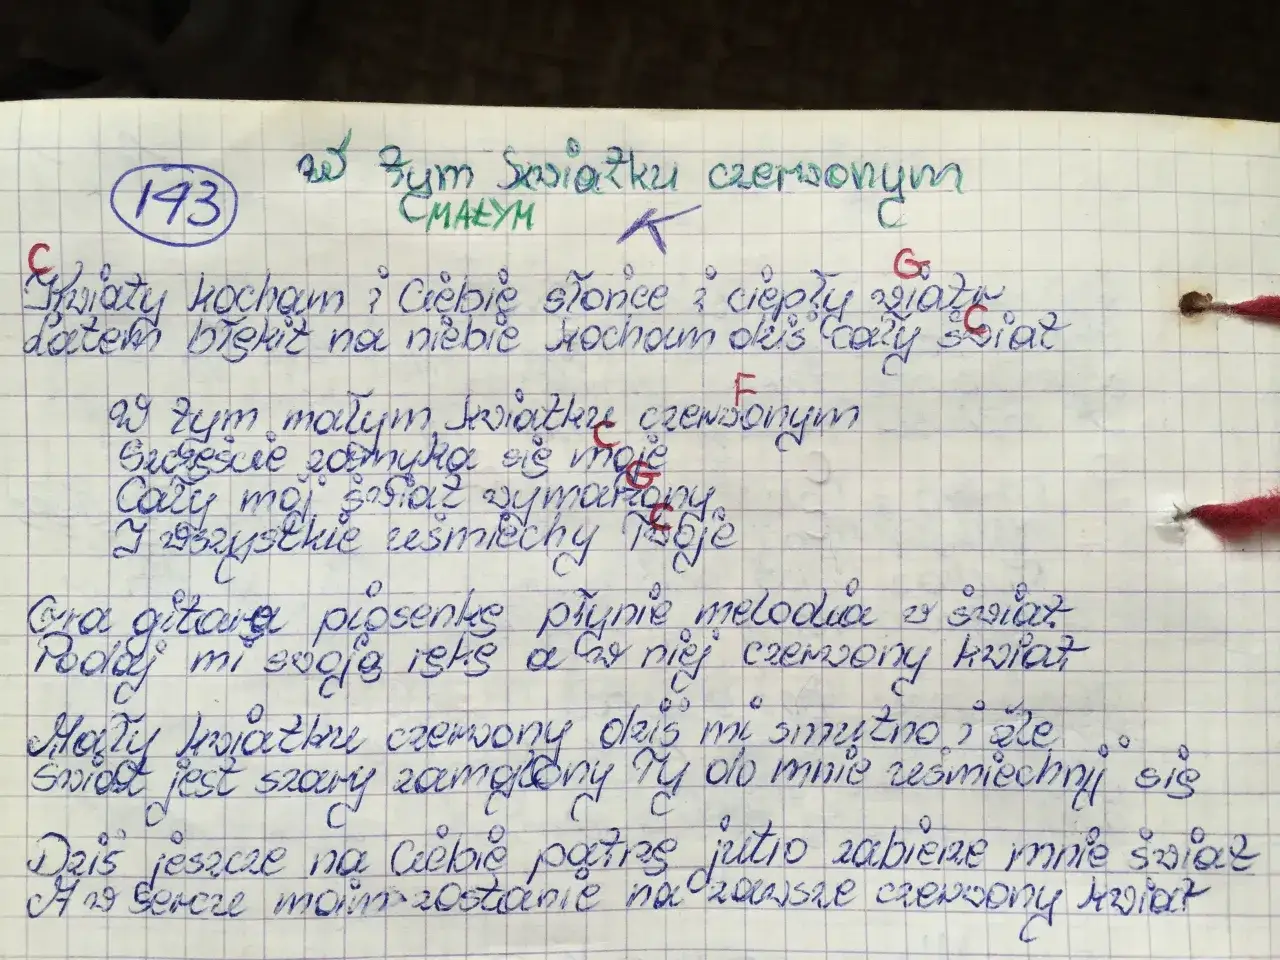 W tym kwiatku czerwonym
143
MAŁYM
K
C G
Kwiaty kocham i Ciebie słońce i ciepły wiatr
C
Latem błękit na niebie kocham dziś cały świat
F
W tym małym kwiatku czerwonym
C
Szczęście zamyka się moje
G
Cały mój świat wymarzony
C
I wszystkie uśmiechy Twoje
Gra gitara piosenkę płynie melodia w świat
Podaj mi swoją rękę a w niej czerwony kwiat
Mały kwiatku czerwony dziś mi smutno i źle
Świat jest szary zamglony Ty do mnie uśmiechnij się
Dziś jeszcze na Ciebie patrzę jutro zabierze mnie świat
A w sercu moim zostanie na zawsze czerwony kwiat